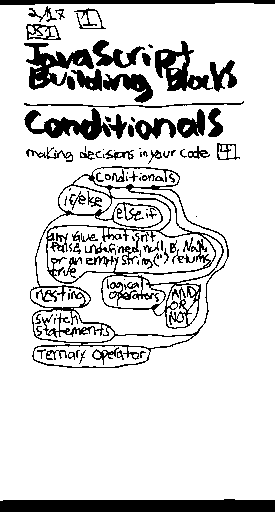 2/17 1
JS1
JavaScript
Building Blocks
Conditionals
making decisions in your code 4
Conditionals
if/else
else if
any value that isn't
false, undefined, null, 0, NaN,
or an empty string('') returns
true
nesting
logical
operators
AND
OR
NOT
switch
statements
Ternary operator